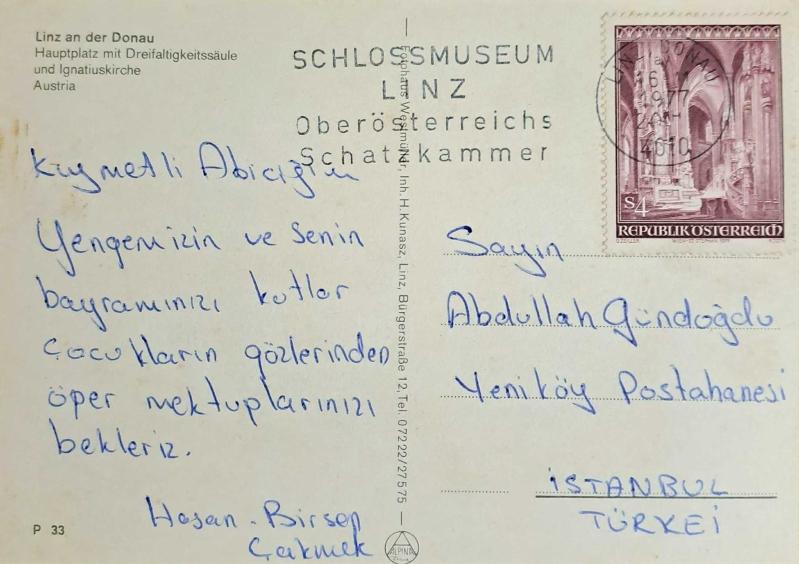 Linz an der Donau
Hauptplatz mit Dreifaltigkeitssäule
und Ignatiuskirche
Austria
SCHLOSSMUSEUM
LINZ
Oberösterreichs
Schatzkammer
LINZ DONAU
16
1977
4010
S4
REPUBLIK ÖSTERREICH
Kıymetli Abiciğim
Yengemizin ve Senin
bayramınızı kutlar
çocukların gözlerinden
öper mektuplarınızı
bekleriz.
Hasan - Birsen
Çakmek
Sayın
Abdullah Gündoğdu
Yeniköy Postahanesi
İSTANBUL
TÜRKEİ
Fotohaus Westmüller, Inh. H. Kunasz, Linz, Bürgerstraße 12, Tel. 07222/27575
P 33
ALPINA